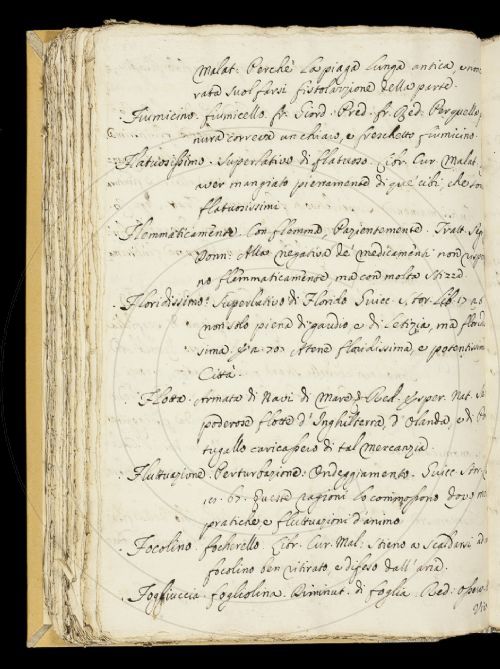 Malat. Perchè la piaga lunga antica, e non
rata suol farsi fistolazione della parte.
Fiumicino. fiumicello. fr. Giord. Pred. fr. Red. Per quella
nura correva un chiaro, e freschetto fiumicino.
Flatuosissimo. Superlativo di flatuoso. Libr. Cur. Malat.
aver mangiato pienamente di que' cibi, che son
flatuosissimi
Flemmaticamente. Con flemma, Pazientemente. Tratt. Seg.
Donn. Alla negativa de' medicamenti non rispon
no flemmaticamente ma con molta stizza.
Floridissimo. Superlativo di Florido Guicc. Stor. Lib. 17 a
non solo piena di gaudio, e di letizia, ma florid
sima, e a. 707 Atene floridissima, e potentissima
Città.
Flotta. armata di Navi di Mare. Red. Esper. Nat.
poderose flotte d'Inghilterra, d'Olanda, e di Por
tugallo caricassero di tal mercanzia.
Fluttuazione. Perturbazione. Ondeggiamento. Guicc. Stor.
Queste ragioni lo commossono dopo
pratiche e fluttuazioni d'animo
Focolino. focherello. Libr. Cur. Mal. Stieno a scaldarsi ad
focolino ben ritirato e difeso dall'aria.
Fogliuccia. fogliolina. Diminut. di foglia. Red.